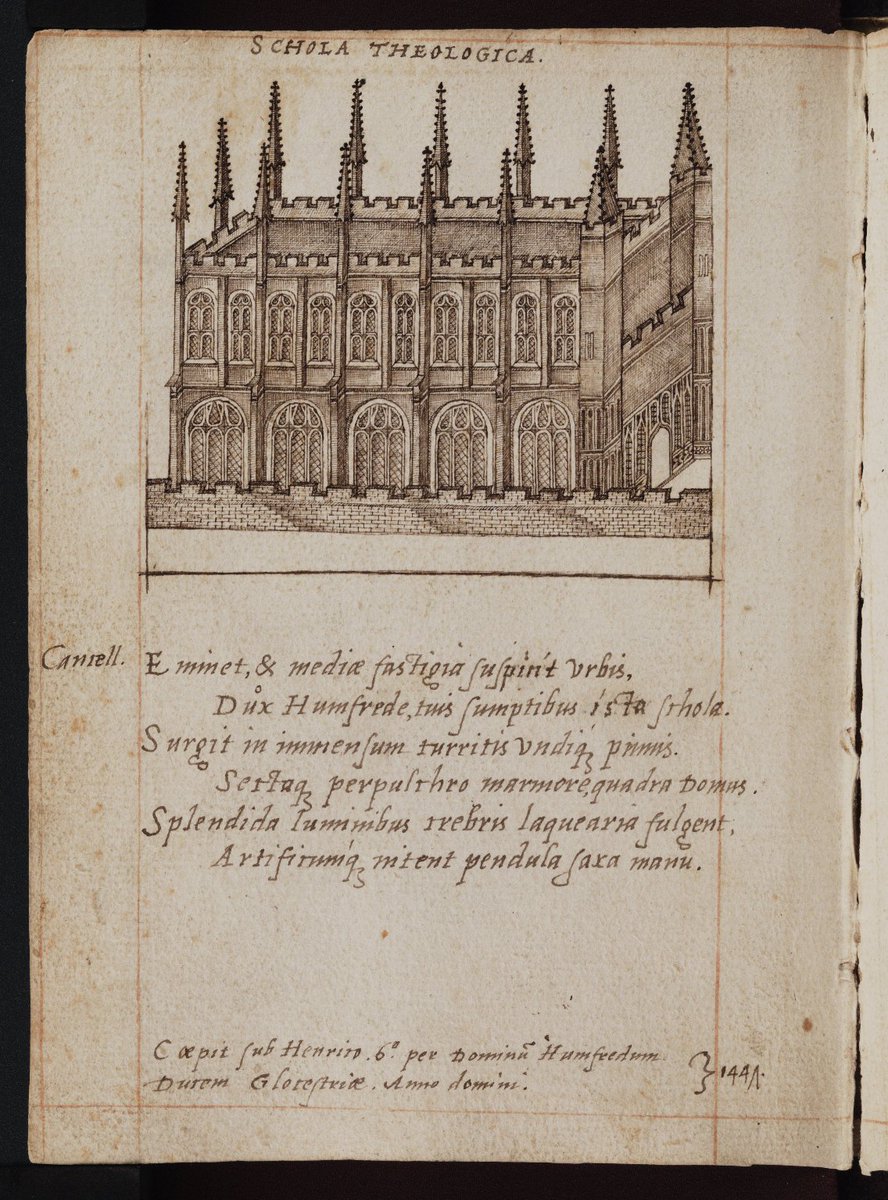 SCHOLA THEOLOGICA.
Cancell. Eminet, & mediæ fastigia suspicit Vrbis,
Dux Humfrede, tuis sumptibus ista schola.
Surgit in immensum turritis vndiq; pinnis.
Sectaq; perpulchro marmore, quadra Domus.
Splendida luminibus crebris laquearia fulgent,
Artificumq; nitent pendula saxa manu.
Cœpit sub Henrico. 6º per Dominū Humfredum
Ducem Glocestriæ. Anno domini.